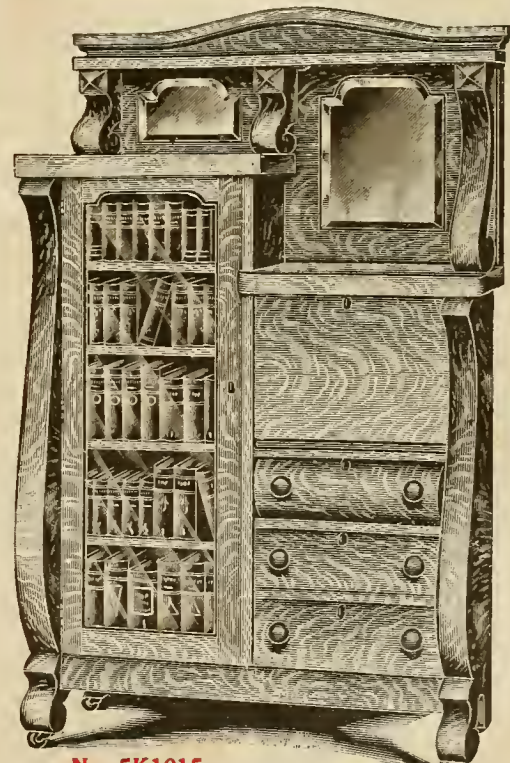 No. 5K1015